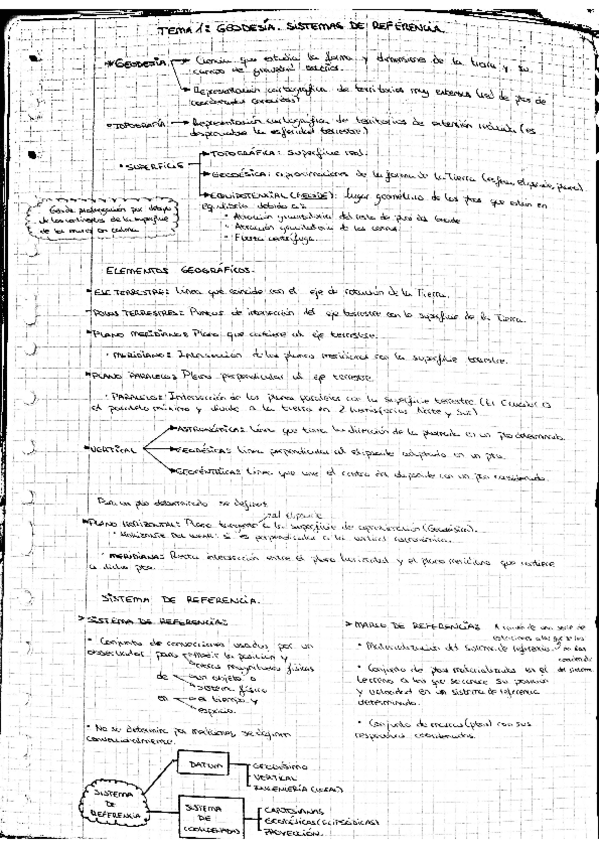 TEMA 1: GEODESÍA. SISTEMAS DE REFERENCIA.
GEODESIA → Ciencia que estudia la forma y dimensiones de la tierra y su
campo de gravedad externo.
→ Representación cartográfica de territorios muy extensos (red de ptos de
coordenadas
TOPOGRAFÍA → Representación cartográfica de territorios de extensión reducida (es
despreciable la esfericidad terrestre)
SUPERFICIE
→ TOPOGRÁFICA: superficie real.
→ GEODÉSICA: aproximaciones de la forma de la Tierra (esfera, elipsoide, plano)
→ EQUIPOTENCIAL (GEOIDE): Lugar geométrico de los ptos que están en
equilibrio debido a:
· Atracción gravitatoria del resto de ptos del
· Atracción gravitatoria de los
· Fuerza centrífuga.
Geoide prolongación por debajo
de los continentes de la superficie
de los mares en calma.
ELEMENTOS GEOGRÁFICOS.
EJE TERRESTRE: Línea que coincide con el eje de rotación de la Tierra.
POLOS TERRESTRES: Puntos de intersección del eje terrestre con la superficie de la Tierra.
PLANO MERIDIANO: Plano que contiene al eje terrestre.
· MERIDIANO: Intersección de los planos meridianos con la superficie terrestre.
PLANO PARALELO: Plano perpendicular al eje terrestre
· PARALELO: Intersección de los planos paralelos con la superficie terrestre (El Ecuador es
el paralelo máximo y divide a la tierra en 2 hemisferios Norte y Sur)
VERTICAL
→ ASTRONÓMICA: Línea que tiene la dirección de la plomada en un pto determinado.
→ GEODÉSICA: Línea perpendicular al elipsoide adoptado en un pto.
→ GEOCÉNTRICA: Línea que une el centro del elipsoide con un pto considerado.
Para un pto determinado se definen:
al elipsoide
PLANO HORIZONTAL: Plano tangente a la superficie de aproximación (Geodésica).
· HORIZONTE DEL LUGAR: si es perpendicular a la vertical astronómica.
· MERIDIANA: Recta intersección entre el plano horizontal y el plano meridiano que contiene
a dicho pto.
SISTEMA DE REFERENCIA.
> SISTEMA DE REFERENCIA:
· Conjunto de convenciones usadas por un
observador para medir la posición y
otras magnitudes físicas
de un objeto o
sistema físico
en el tiempo y
espacio.
· No se determina por mediciones, se definen
convencionalmente.
> MARCO DE REFERENCIA:
A través de una serie de
· Materialización del sistema de referencia.
· Conjunto de ptos materializados en el
terreno a los que se conoce su posición
y velocidad en un sistema de referencia
determinado.
· Conjunto de marcas (ptos) con sus
respectivas coordenadas.
SISTEMA
DE
REFERENCIA
DATUM
GEODÉSICO
VERTICAL
INGENIERÍA (LOCAL)
SISTEMA
DE
COORDENADAS
CARTESIANAS
GEODÉSICAS (ELIPSÓDICAS)
PROYECCIÓN.